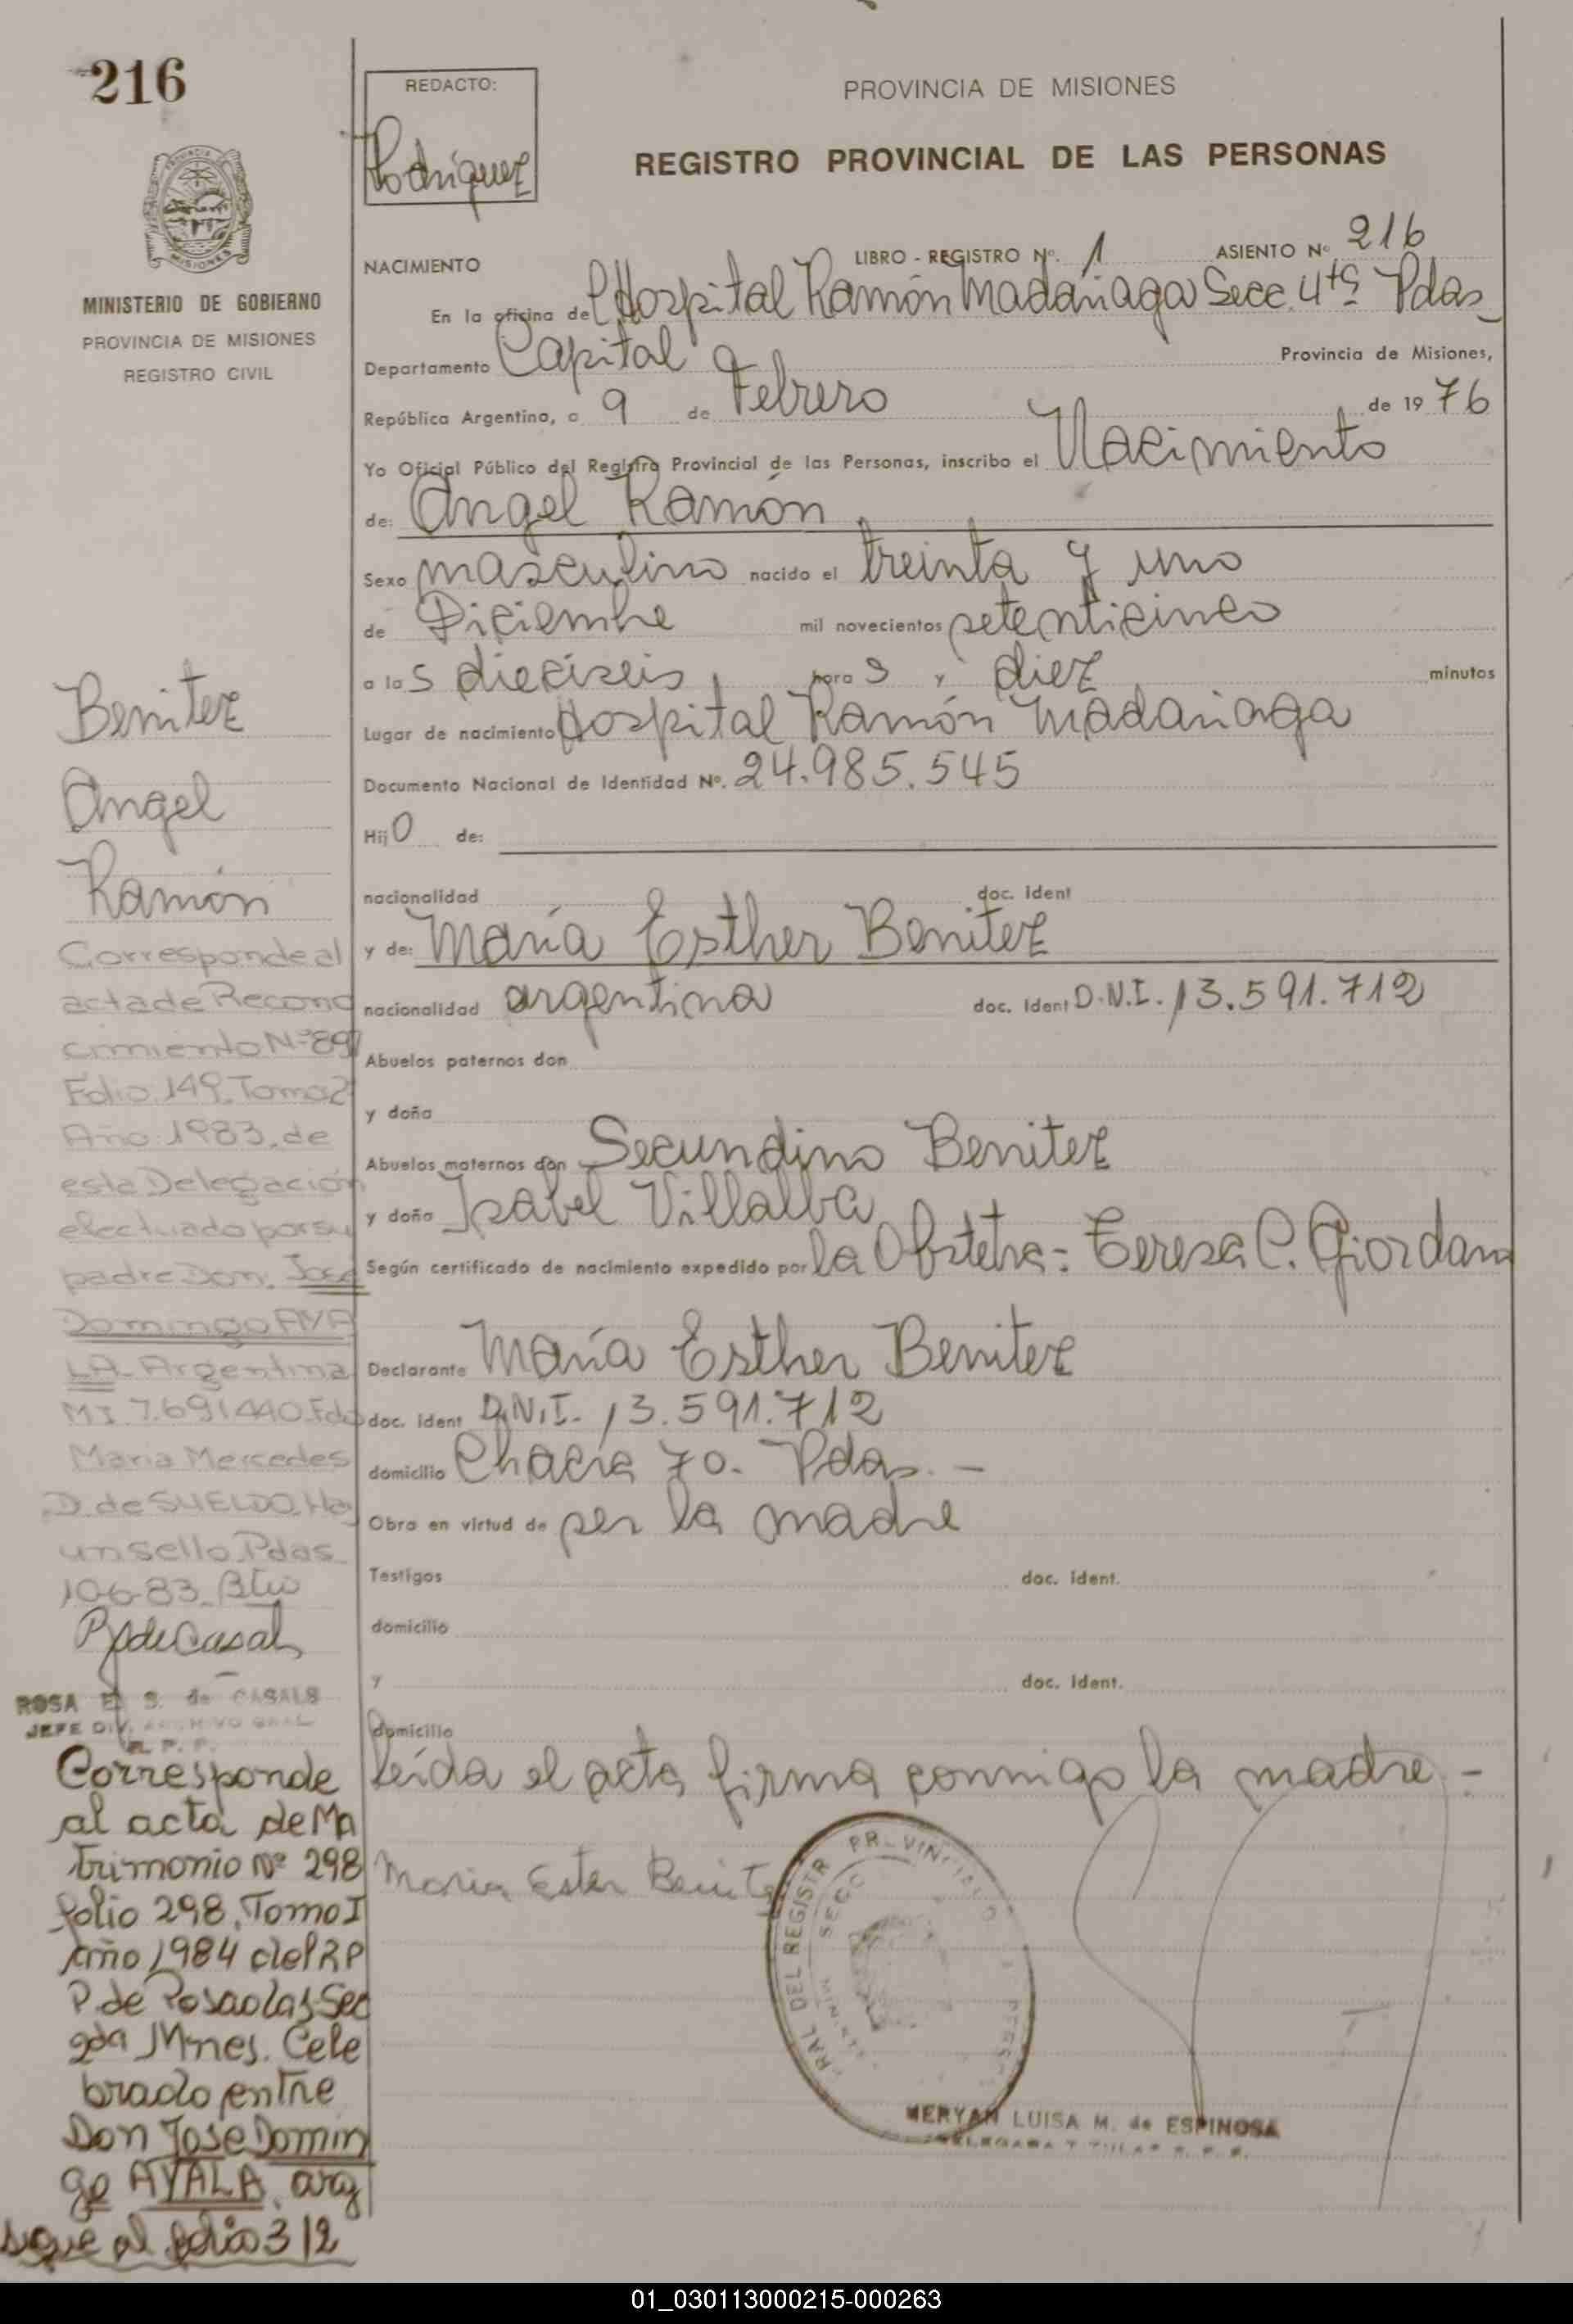 216
MINISTERIO DE GOBIERNO
PROVINCIA DE MISIONES
REGISTRO CIVIL
Benitez
Angel
Ramón
Corresponde al
acta de Recono
cimiento Nº 897
Folio 149. Tomo 2
Año 1983, de
esta Delegación
efectuado por su
padre Don. José
Domingo AYA
LA Argentina
M.I. 7.691.440. Fdo
Maria Mercedes
D. de SUELDO. Hay
un sello. Pdas
10-6-83.
ROSA E. S. de CASALS
JEFE DIV. ARCHIVO GRAL
R. P. P.
Corresponde
al acta de Ma
trimonio Nº 298
folio 298, Tomo I
Año 1984 del R P
P. de Posadas Sec
2da Mnes. Cele
brado entre
Don Jose Domin
go AYALA, arg
sigue al folio 312
REDACTO:
Rodriguez
PROVINCIA DE MISIONES
REGISTRO PROVINCIAL DE LAS PERSONAS
NACIMIENTO LIBRO - REGISTRO Nº. 1 ASIENTO Nº 216
En la oficina del Hospital Ramón Madariaga Secc. 4ta Pdas
Departamento Capital Provincia de Misiones,
República Argentina, a 9 de Febrero de 1976
Yo Oficial Público del Registro Provincial de las Personas, inscribo el Nacimiento
de: Angel Ramón
Sexo masculino nacido el treinta y uno
de Diciembre mil novecientos setenticinco
a las dieciseis horas y diez minutos
Lugar de nacimiento Hospital Ramón Madariaga
Documento Nacional de Identidad Nº. 24.985.545
Hijo de:
nacionalidad doc. ident
y de: María Esther Benitez
nacionalidad argentina doc. ident D.N.I. 13.591.712
Abuelos paternos don
y doña
Abuelos maternos don Secundino Benitez
y doña Isabel Villalba
Según certificado de nacimiento expedido por la Obstetra: Teresa C. Giordano
Declarante María Esther Benitez
doc. ident D.N.I. 13.591.712
domicilio Chacra 70. Pdas. -
Obra en virtud de ser la madre
Testigos doc. ident.
domicilio
y doc. ident.
domicilio
leída el acta firma conmigo la madre -
Maria Ester Benitez
MERYAN LUISA M. de ESPINOSA
01_030113000215-000263